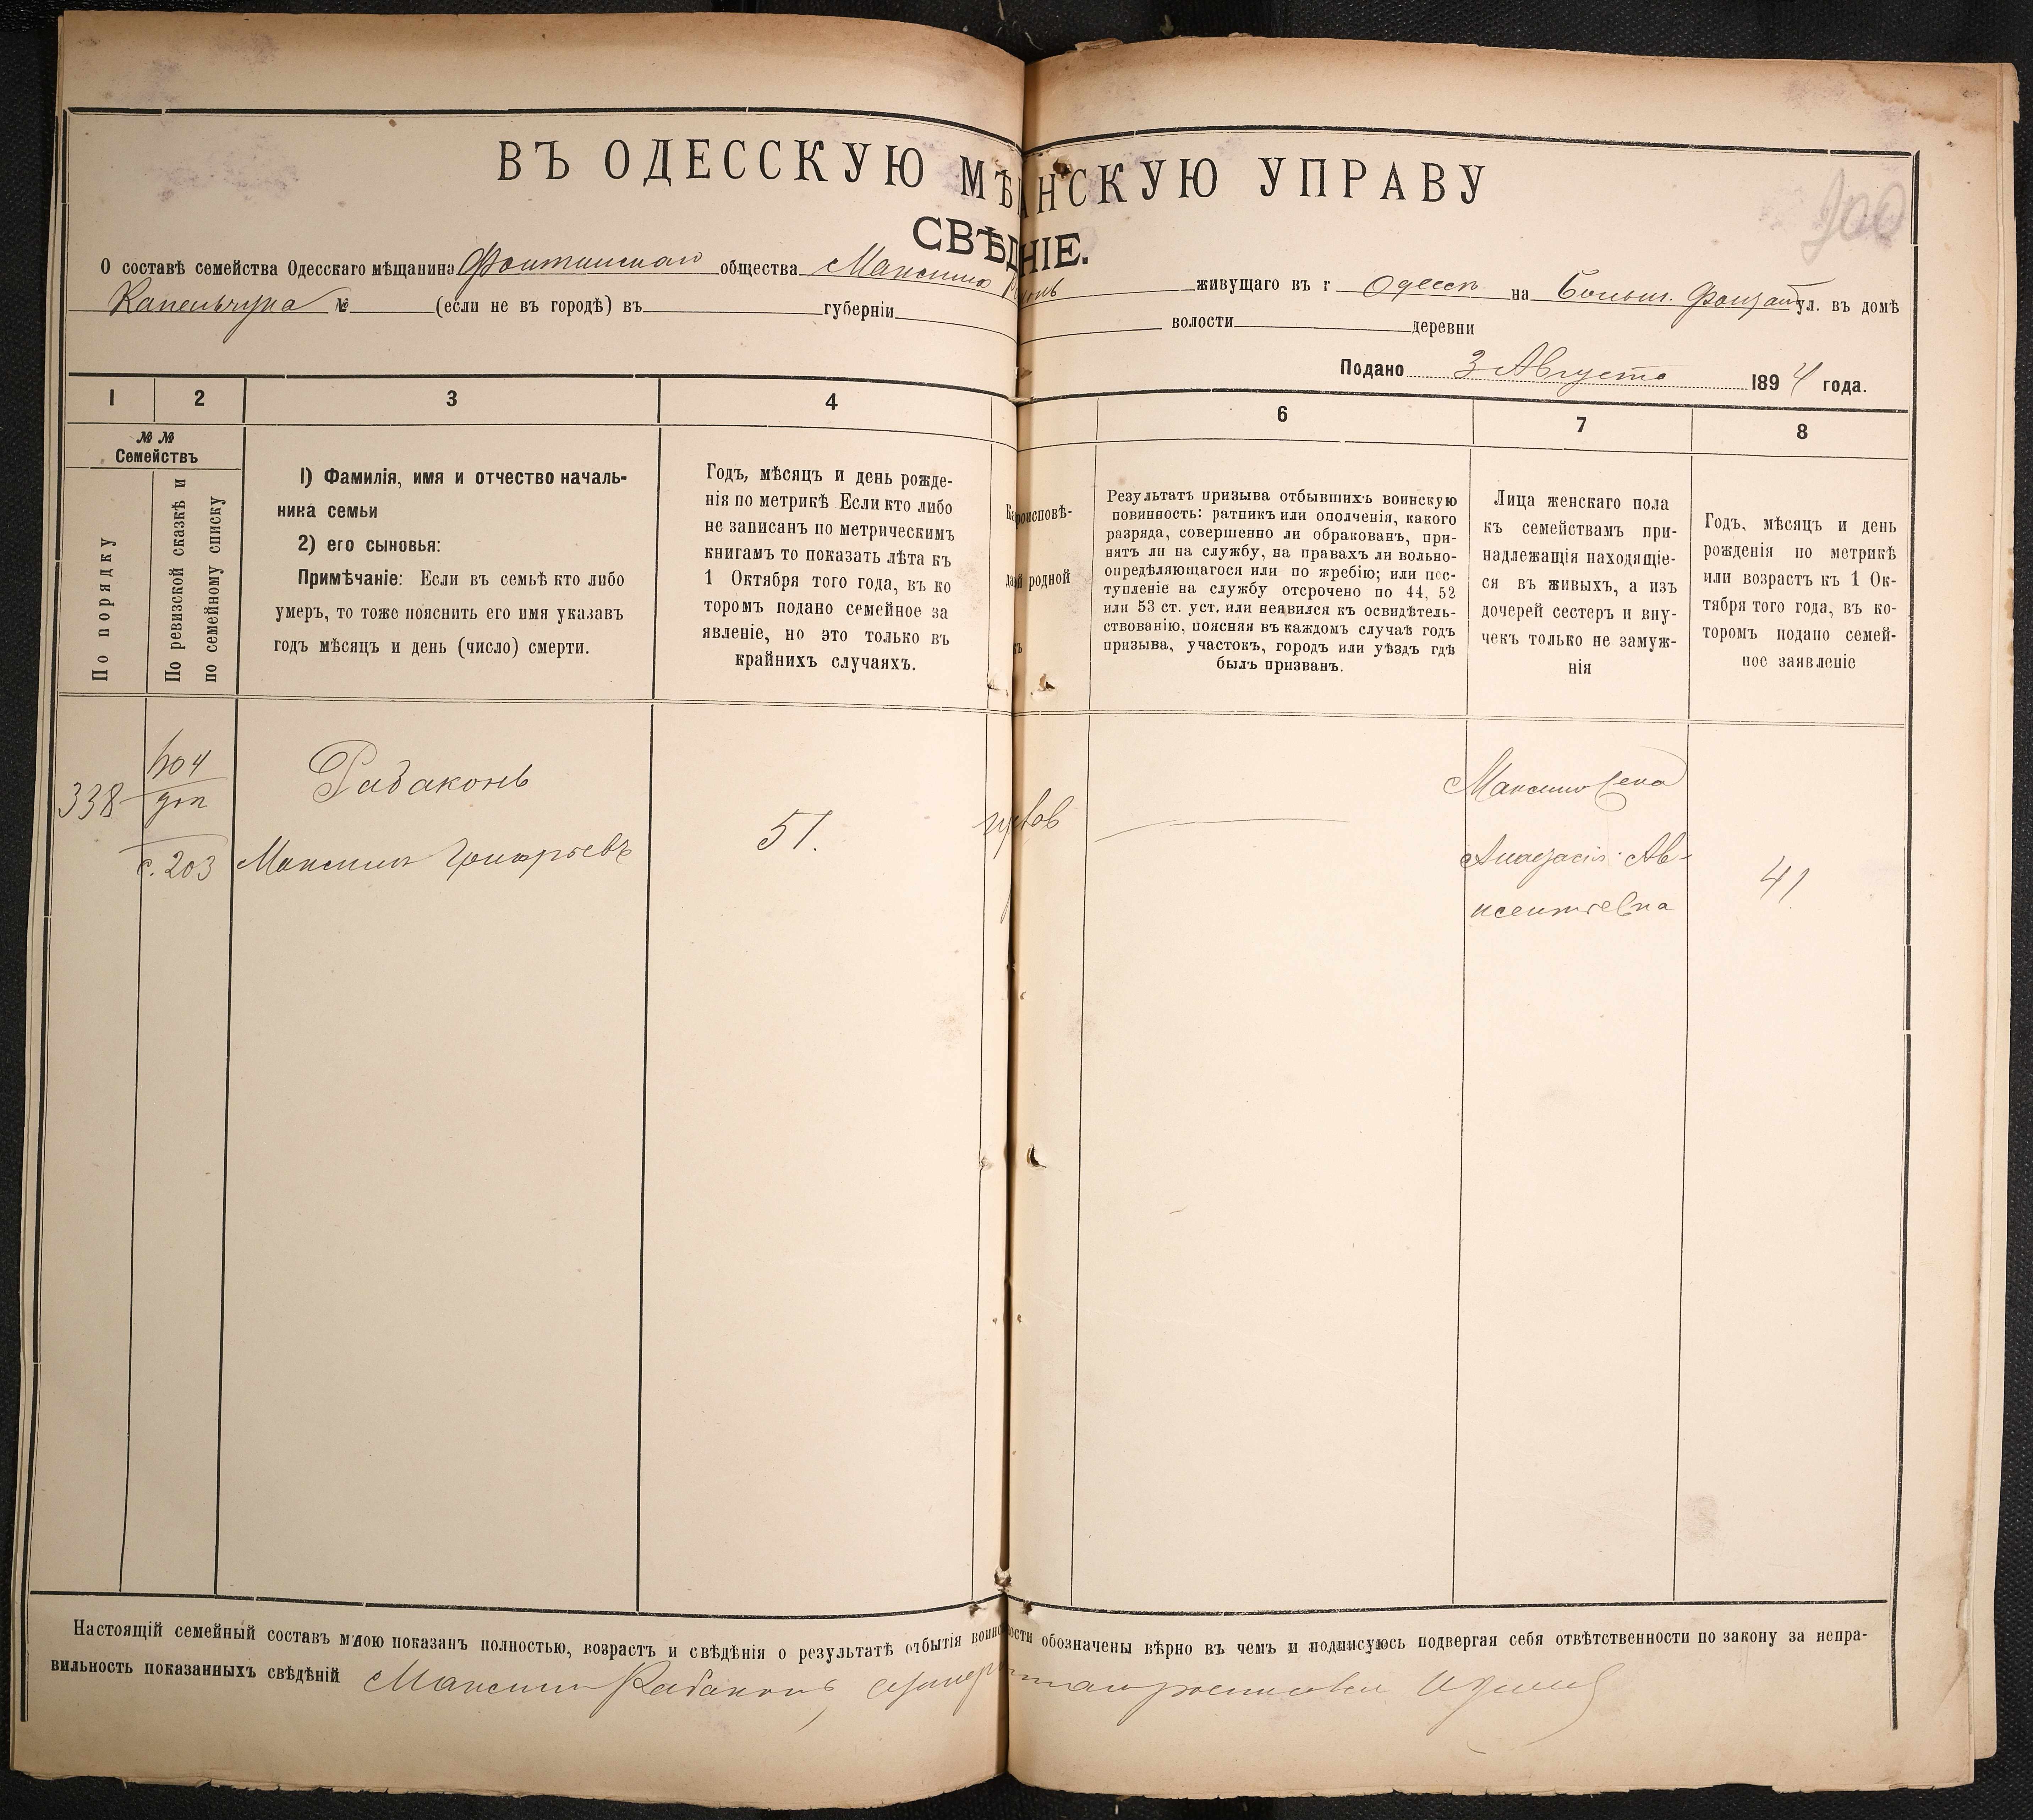 ВЪ ОДЕССКУЮ МѢ АНСКУЮ УПРАВУ
СВѢД НІЕ.
О составѣ семейства Одесскаго мѣщанина Фонтанскаго общества Максима живущаго въ г Одессѣ на Больш. Фонтан ул. въ домѣ
Капельчука № (если не въ городѣ) въ губерніи волости деревни
Подано 3 Августа 1894 года.
1 2 3 4 6 7 8
№№
Семействъ
По порядку
По ревизской сказкѣ и
по семейному списку
1) Фамилія, имя и отчество началь-
ника семьи
2) его сыновья:
Примѣчаніе: Если въ семьѣ кто либо
умеръ, то тоже пояснить его имя указавъ
годъ мѣсяцъ и день (число) смерти.
Годъ, мѣсяцъ и день рожде-
нія по метрикѣ Если кто либо
не записанъ по метрическимъ
книгамъ то показать лѣта къ
1 Октября того года, въ ко
торомъ подано семейное за
явленіе, но это только въ
крайнихъ случаяхъ.
роисповѣ-
родной
Результатъ призыва отбывшихъ воинскую
повинность: ратникъ или ополченія, какого
разряда, совершенно ли обракованъ, при-
нятъ ли на службу, на правахъ ли вольно-
опредѣляющагося или по жребію; или пос-
тупленіе на службу отсрочено по 44, 52
или 53 ст. уст. или неявился къ освидѣтель-
ствованію, поясняя въ каждомъ случаѣ годъ
призыва, участокъ, городъ или уѣздъ гдѣ
былъ призванъ.
Лица женскаго пола
къ семействамъ при-
надлежащія находящіе-
ся въ живыхъ, а изъ
дочерей сестеръ и вну-
чекъ только не замуж-
нія
Годъ, мѣсяцъ и день
рожденія по метрикѣ
или возрастъ къ 1 Ок-
тября того года, въ ко-
торомъ подано семей-
ное заявленіе
338 Рабаконь Максима жена
с. 203 Максимъ Григорьевъ 51. Анастасія Ав-
ксентьевна 41
Настоящій семейный составъ мною показанъ полностью, возрастъ и свѣдѣнія о результатѣ отбытія воинс ости обозначены вѣрно въ чемъ и подписуюсь подвергая себя отвѣтственности по закону за непра-
вильность показанныхъ свѣдѣній Максимъ Рабаконь